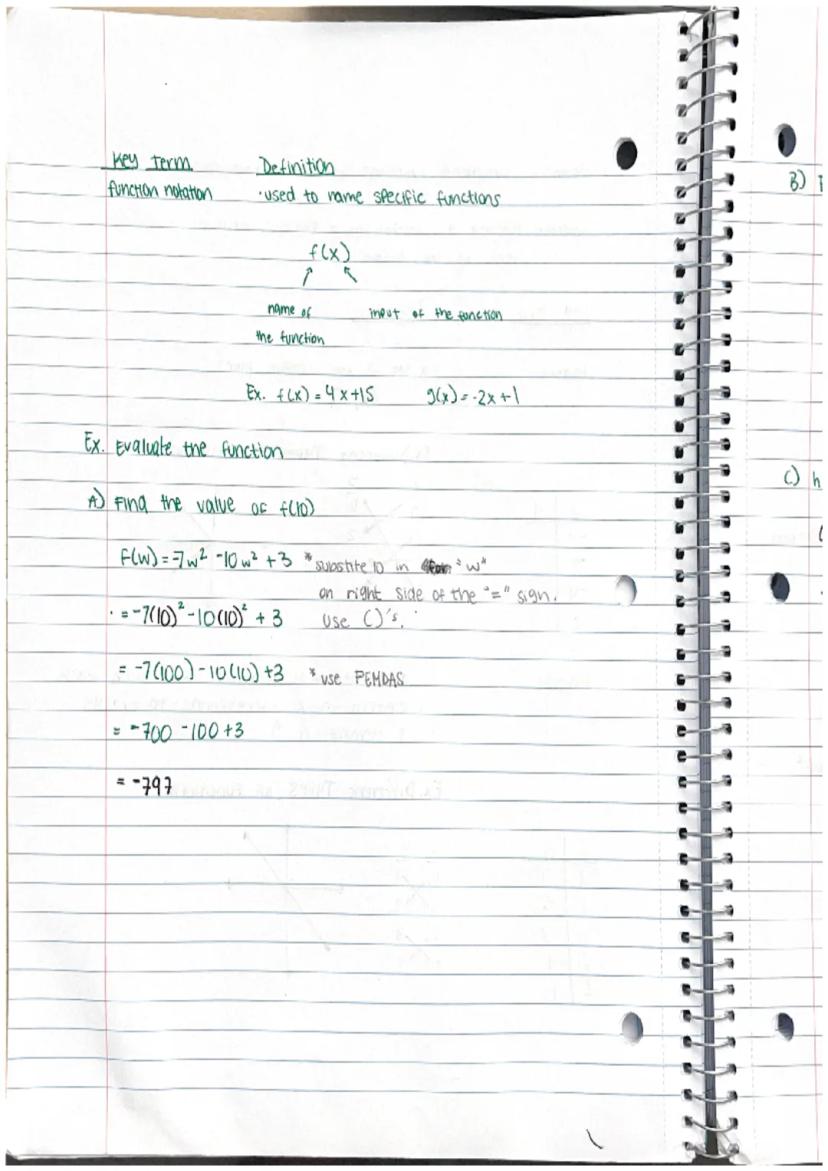 Key Term Definition
function notation • used to name specific functions
f(x)
name of input of the function
the function
Ex. f(x) = 4x+15 g(x) = -2x+1
Ex. Evaluate the function
A) Find the value of f(10)
f(w) = -7w² -10w² + 3 * substite 10 in for "w"
on right side of the "=" sign.
= -7(10)² - 10(10)² + 3 use ( )'s.
= -7(100) - 10(10) + 3 * use PEMDAS
= -700 - 100 + 3
= -797
B)
C) h